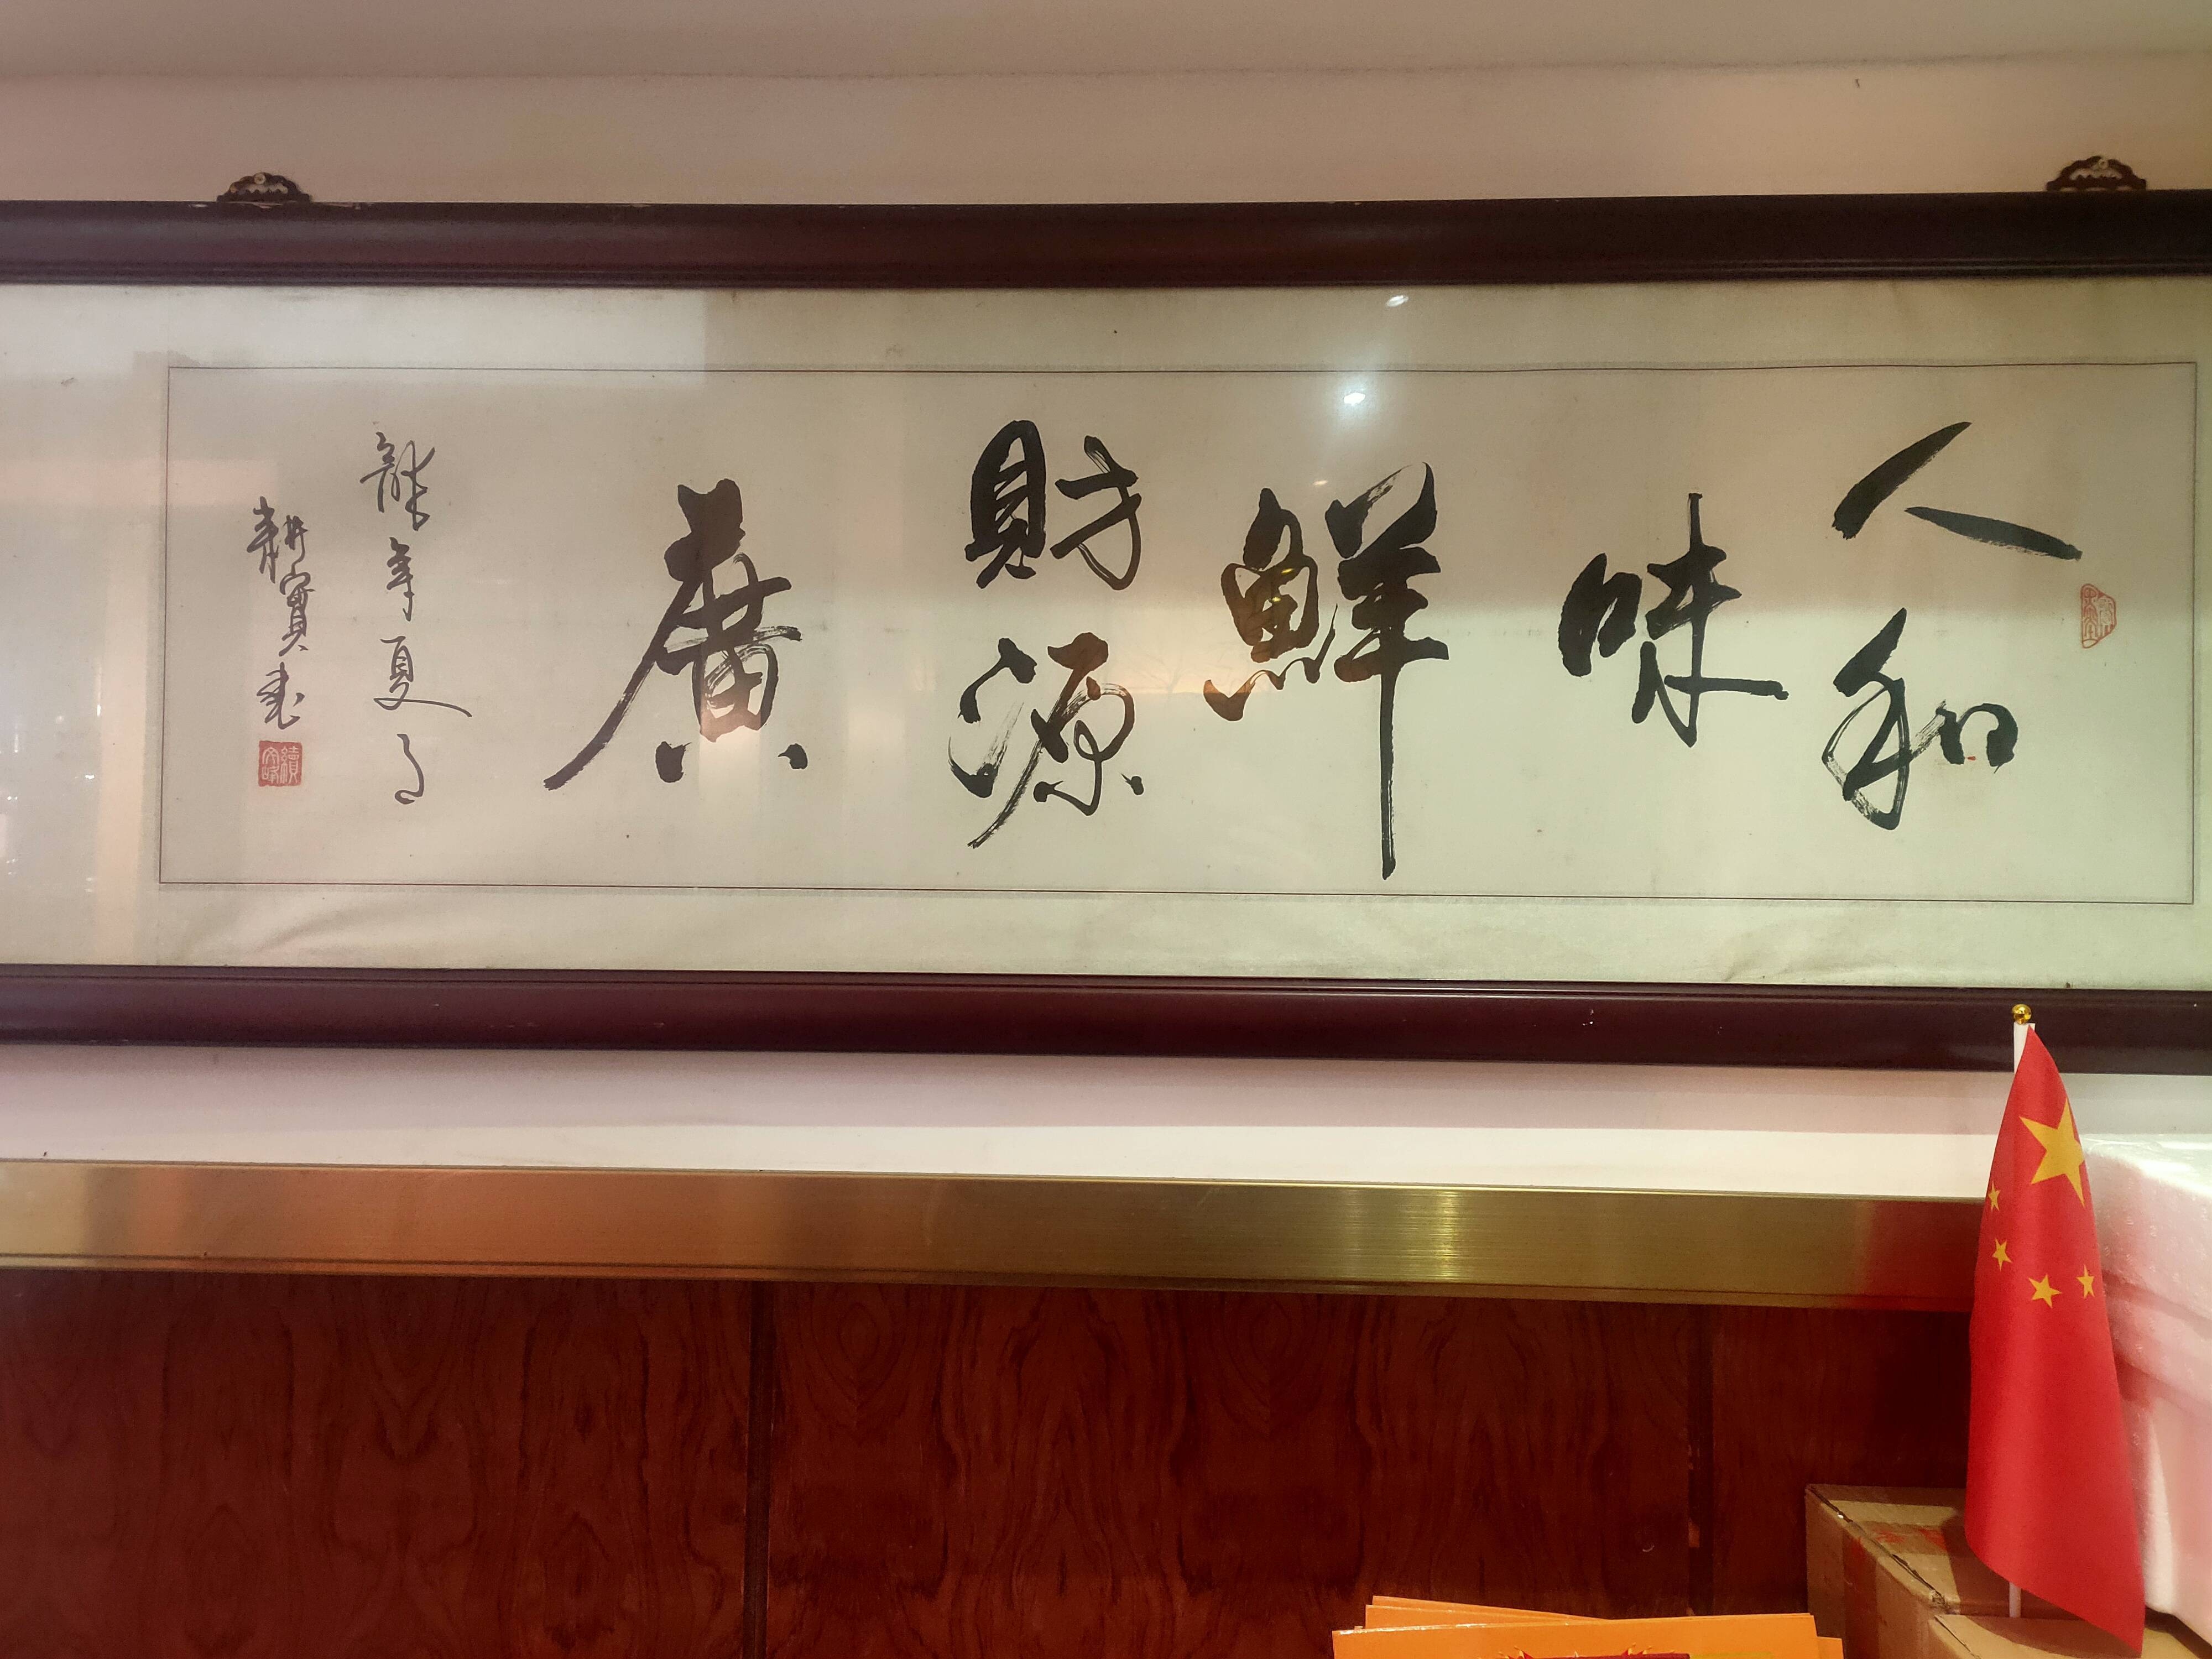 人和
味
鮮
財源
廣
龍年夏月
耕寶書